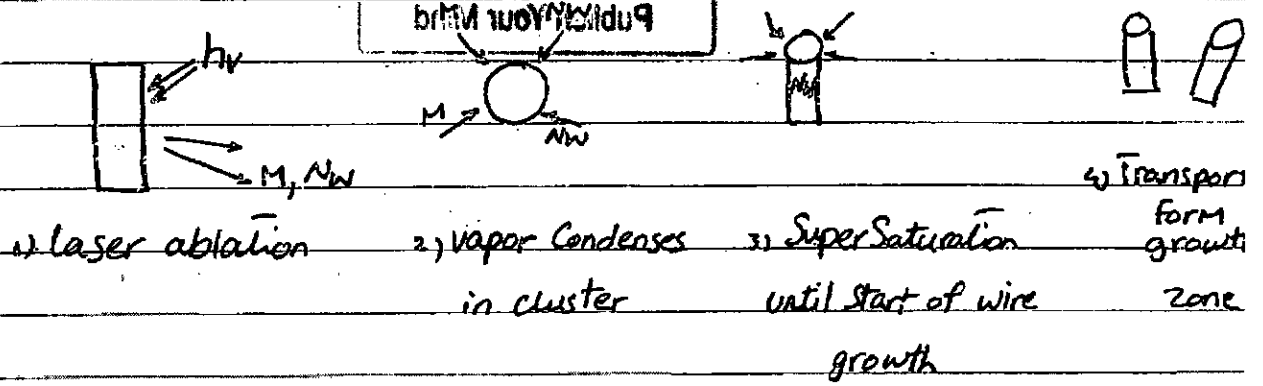 Publish Your Mind
hν
M
NW
NW
M, NW
1) laser ablation
2) vapor Condenses
in cluster
3) Super Saturation
until start of wire
growth
4) Transpor
form
growt
Zone